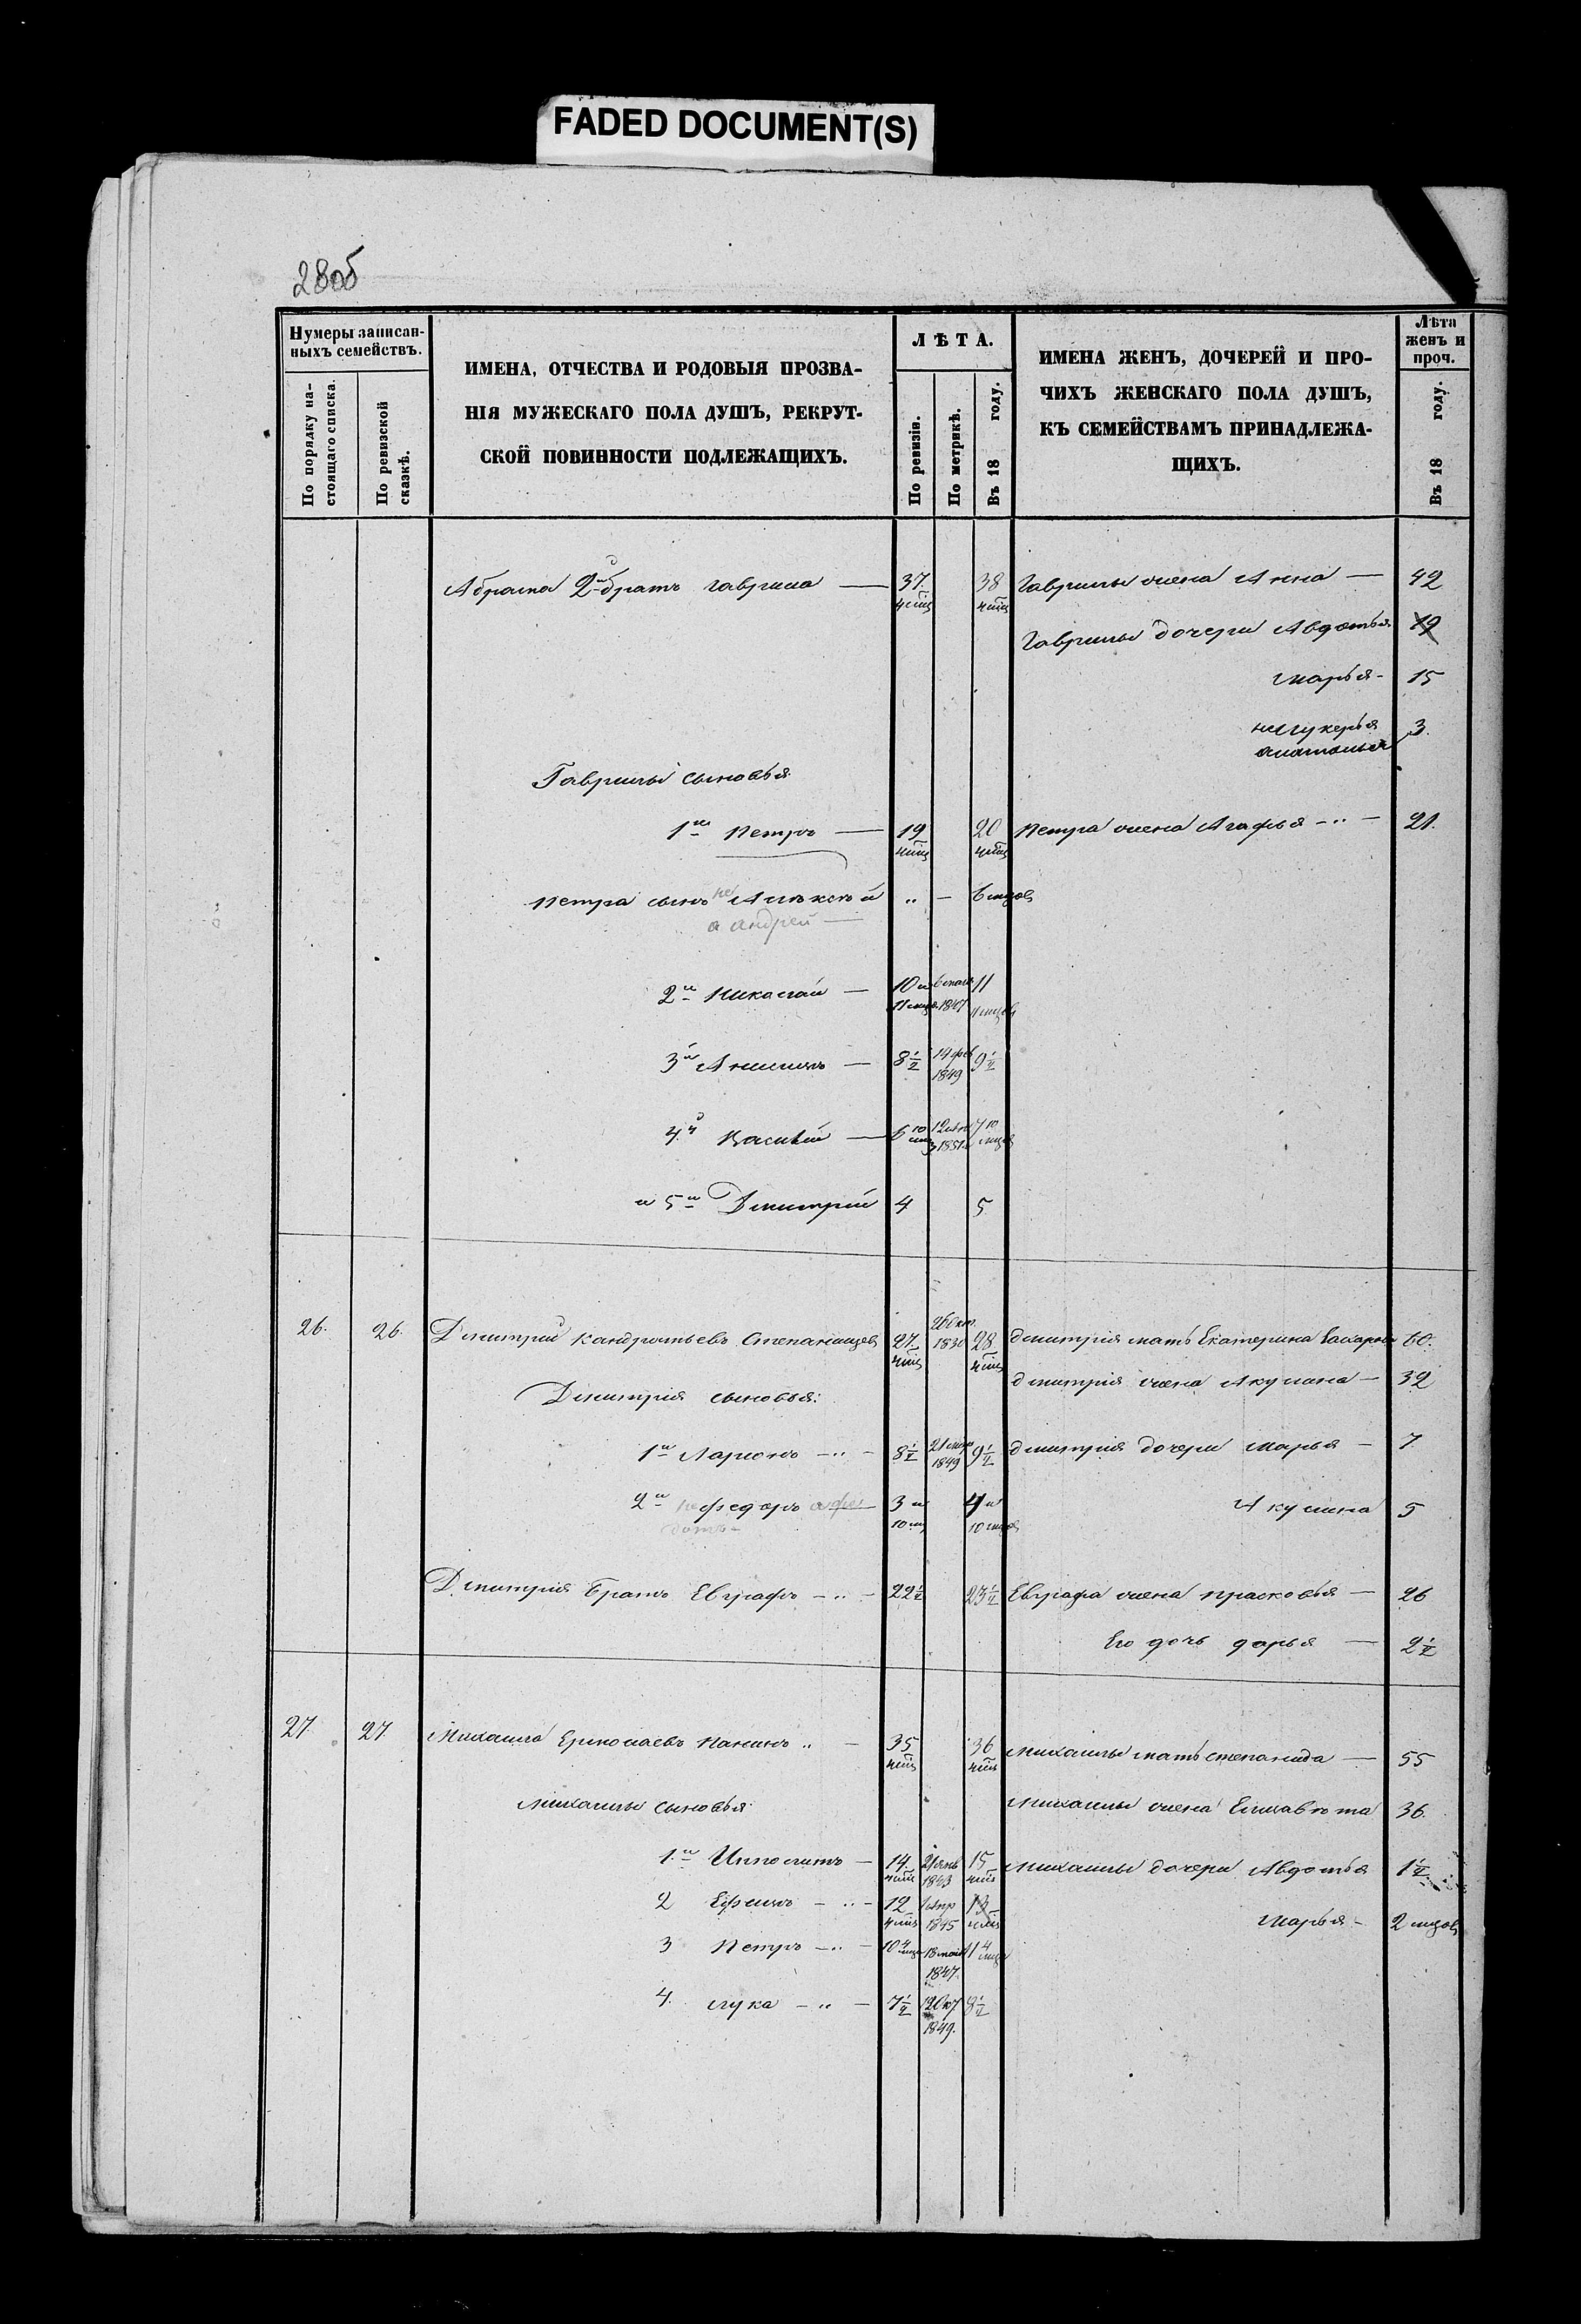 FADED DOCUMENT(S)
28об
Нумеры записан-
ныхъ семействъ.
По порядку на-
стоящаго списка.
По ревизской
сказкѣ.
ИМЕНА, ОТЧЕСТВА И РОДОВЫЯ ПРОЗВА-
НІЯ МУЖЕСКАГО ПОЛА ДУШЪ, РЕКРУТ-
СКОЙ ПОВИННОСТИ ПОДЛЕЖАЩИХЪ.
ЛѢТА.
По ревизіи.
По метрикѣ.
Въ 18 году.
ИМЕНА ЖЕНЪ, ДОЧЕРЕЙ И ПРО-
ЧИХЪ ЖЕНСКАГО ПОЛА ДУШЪ,
КЪ СЕМЕЙСТВАМЪ ПРИНАДЛЕЖА-
ЩИХЪ.
Лѣта
женъ и
проч.
Въ 18 году.
Абрама 2й братъ Гаврила — 37 38 Гаврилы жена Анна — 42
Гаврилы дочери Авдотья 19
Марья - 15
не лукерья 3.
а наталья
Гаврилы сыновья
1й Петръ — 19 20 Петра жена Агафья - „ - 21.
Петра сынъ не Алексѣй „ — 6 мцов
а андрей —
2й Николай — 10 и 11
11 мцо. 1847 11 мцов
3й Анисимъ — 8½ 14 фев 9½
1849
4й Василій — 6 10 7 10
1851
и 5й Дмитрій 4 5
26. 26. Дмитрій Кандратьевъ Степанищев 27 1830 28 Дмитрія мать Екатерина 60.
Дмитрія жена Акулина — 32
Дмитрія сыновья:
1й Ларионъ - „ - 8½ 21 мар 9½ Дмитрія дочери Марья — 7
1849
2й не федоръ а фе 3 и 4 и Акулина 5
дотъ - 10 мц 10 мцов
Дмитрія братъ Евграфъ - „ - 22½ 23½ Евграфа жена Прасковья — 26
Его дочь дарья — 2½
27. 27. Михаила Ермолаевъ Панинъ „ — 35 36 Михаилы мать степанида — 55
Михаилы сыновья Михаилы жена Елизавѣта 36.
1й Ипполитъ — 14 21 янв 15 Михаилы дочери Авдотья 1½
1843
2 Ефимъ - „ - 12 апр 13 Марья - 2 мцов
1845
3 Петръ - „ - 10 4 18 мая 11 4
1847.
4. лука - „ - 7½ 8½
1849.